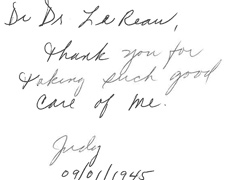 Dr Dr LeReau,
thank you for
taking such good
care of me.
Judy
09/01/1945